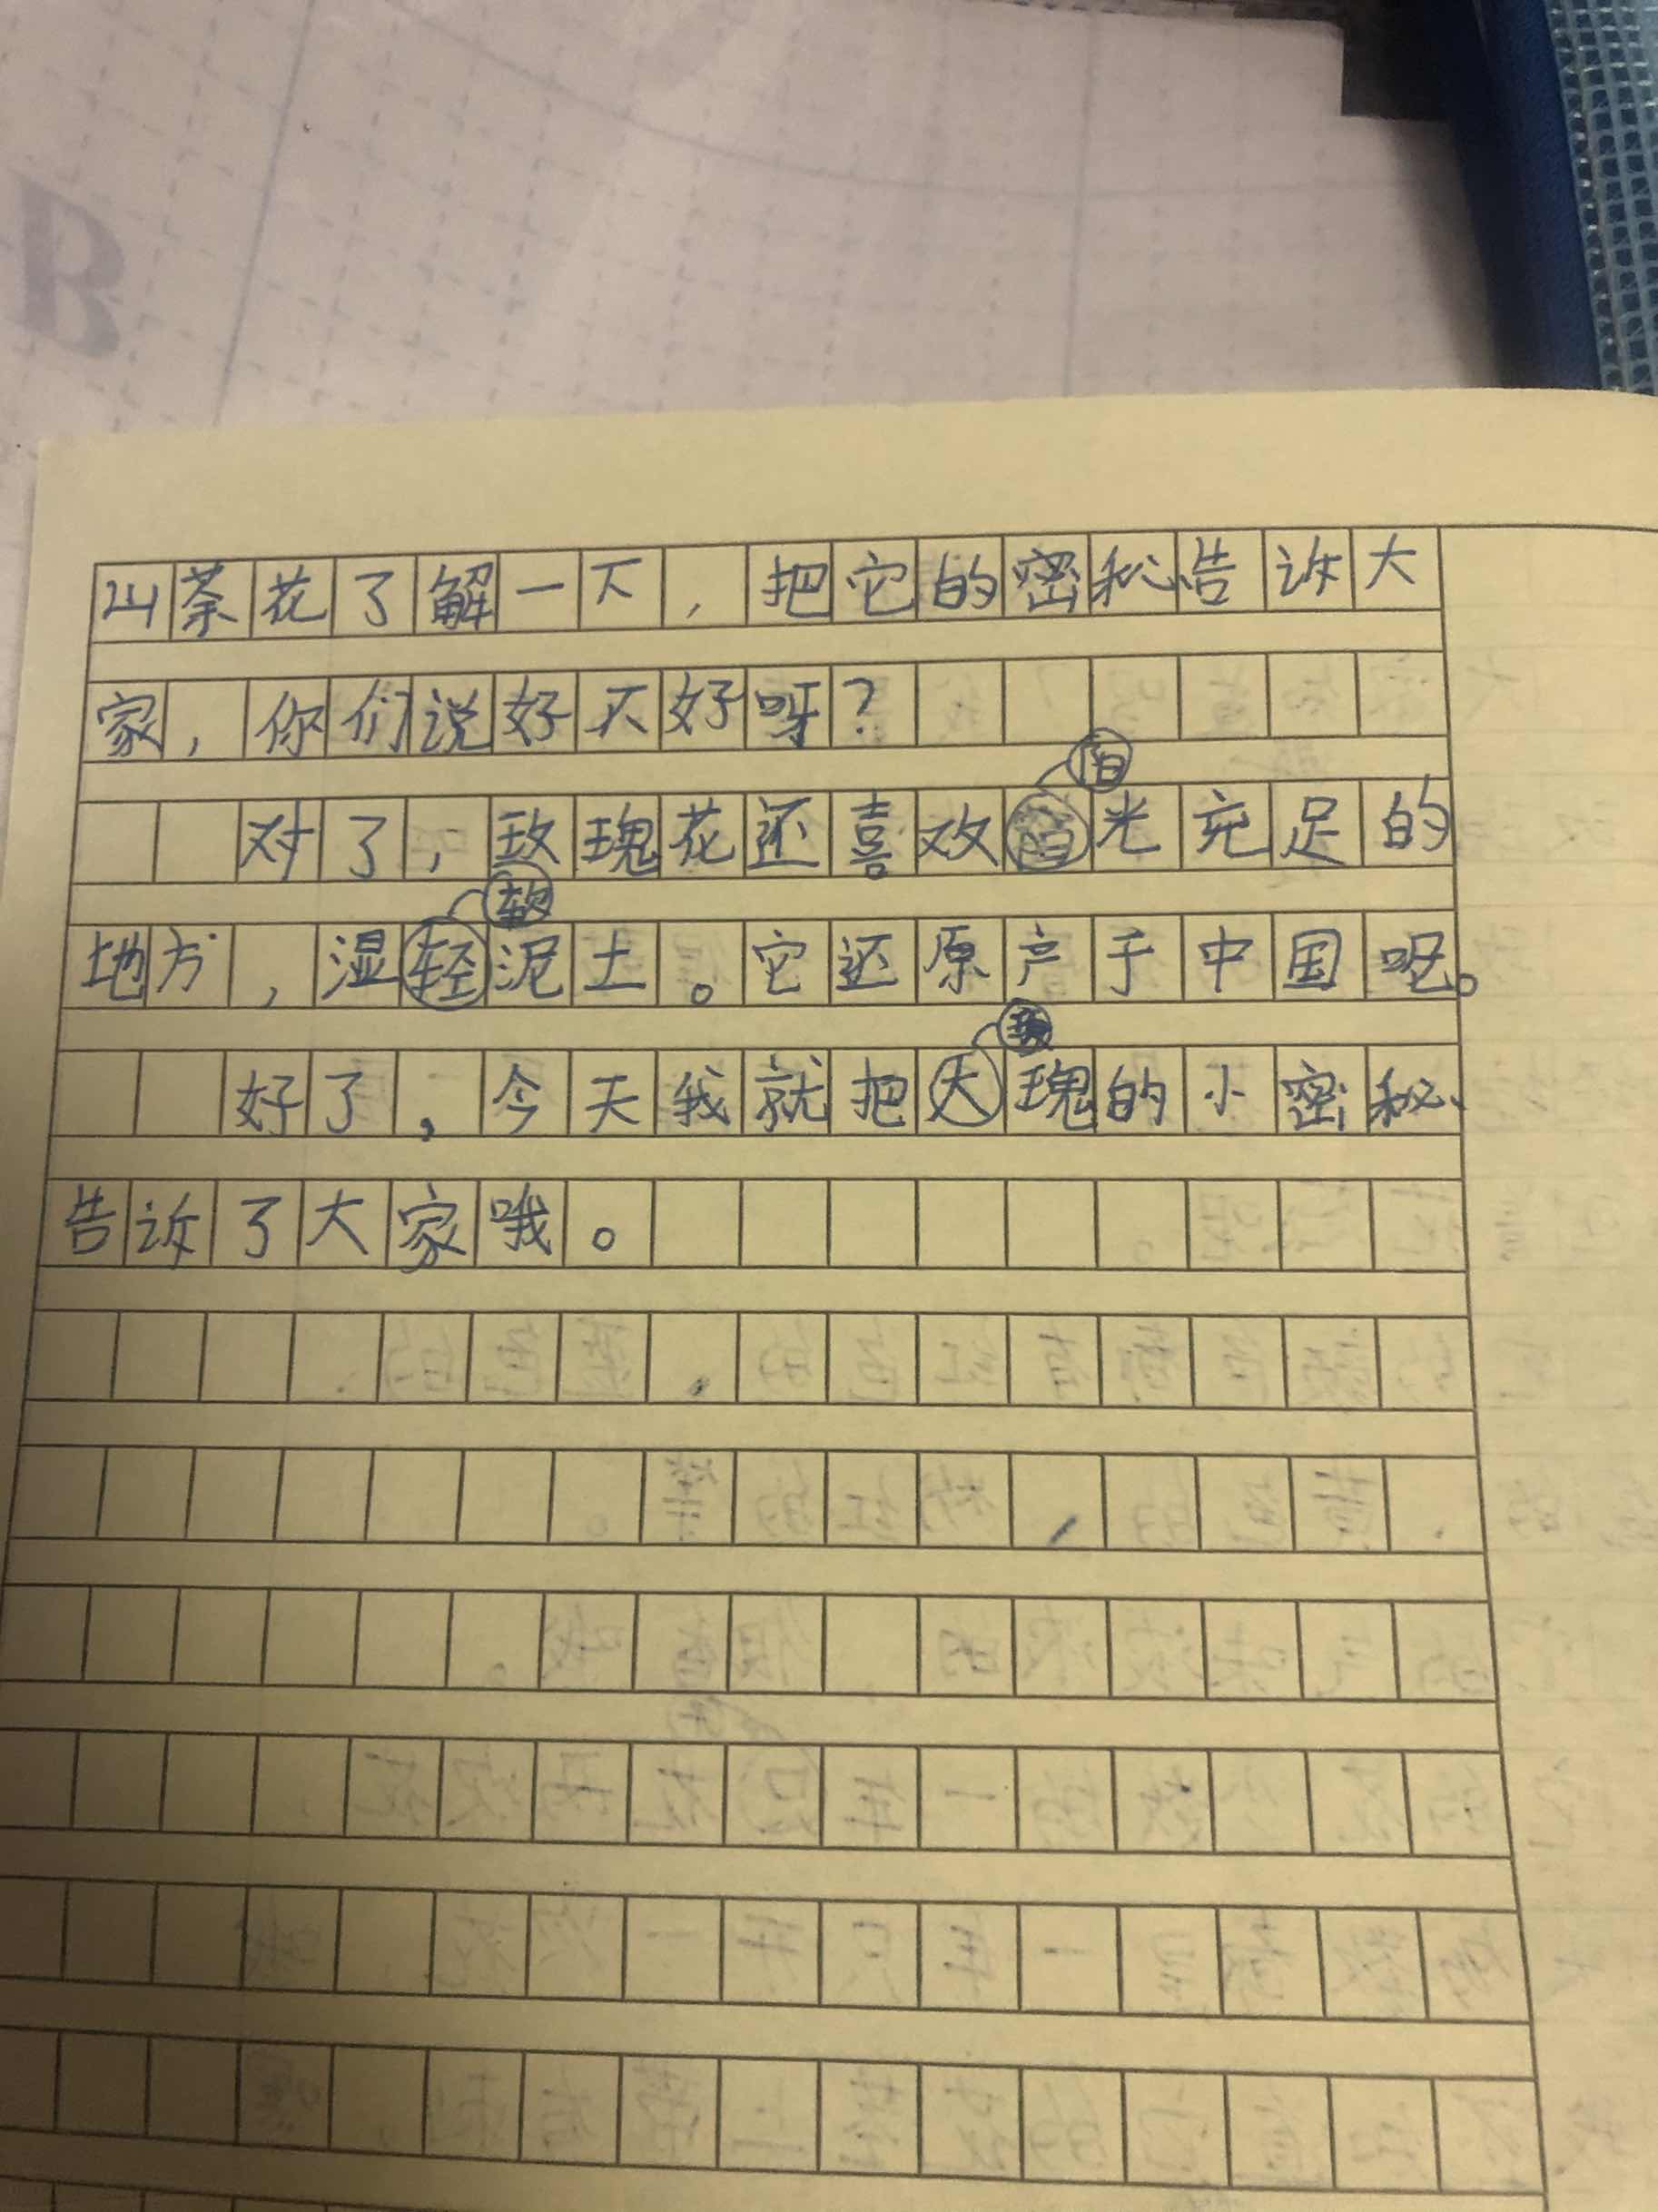 B
山茶花了解一下，把它的密秘告诉大
家，你们说好不好呀？
对了，玫瑰花还喜欢阳光充足的
地方，湿软泥土。它还原产于中国呢。
好了，今天我就把玫瑰的小密秘
告诉了大家哦。